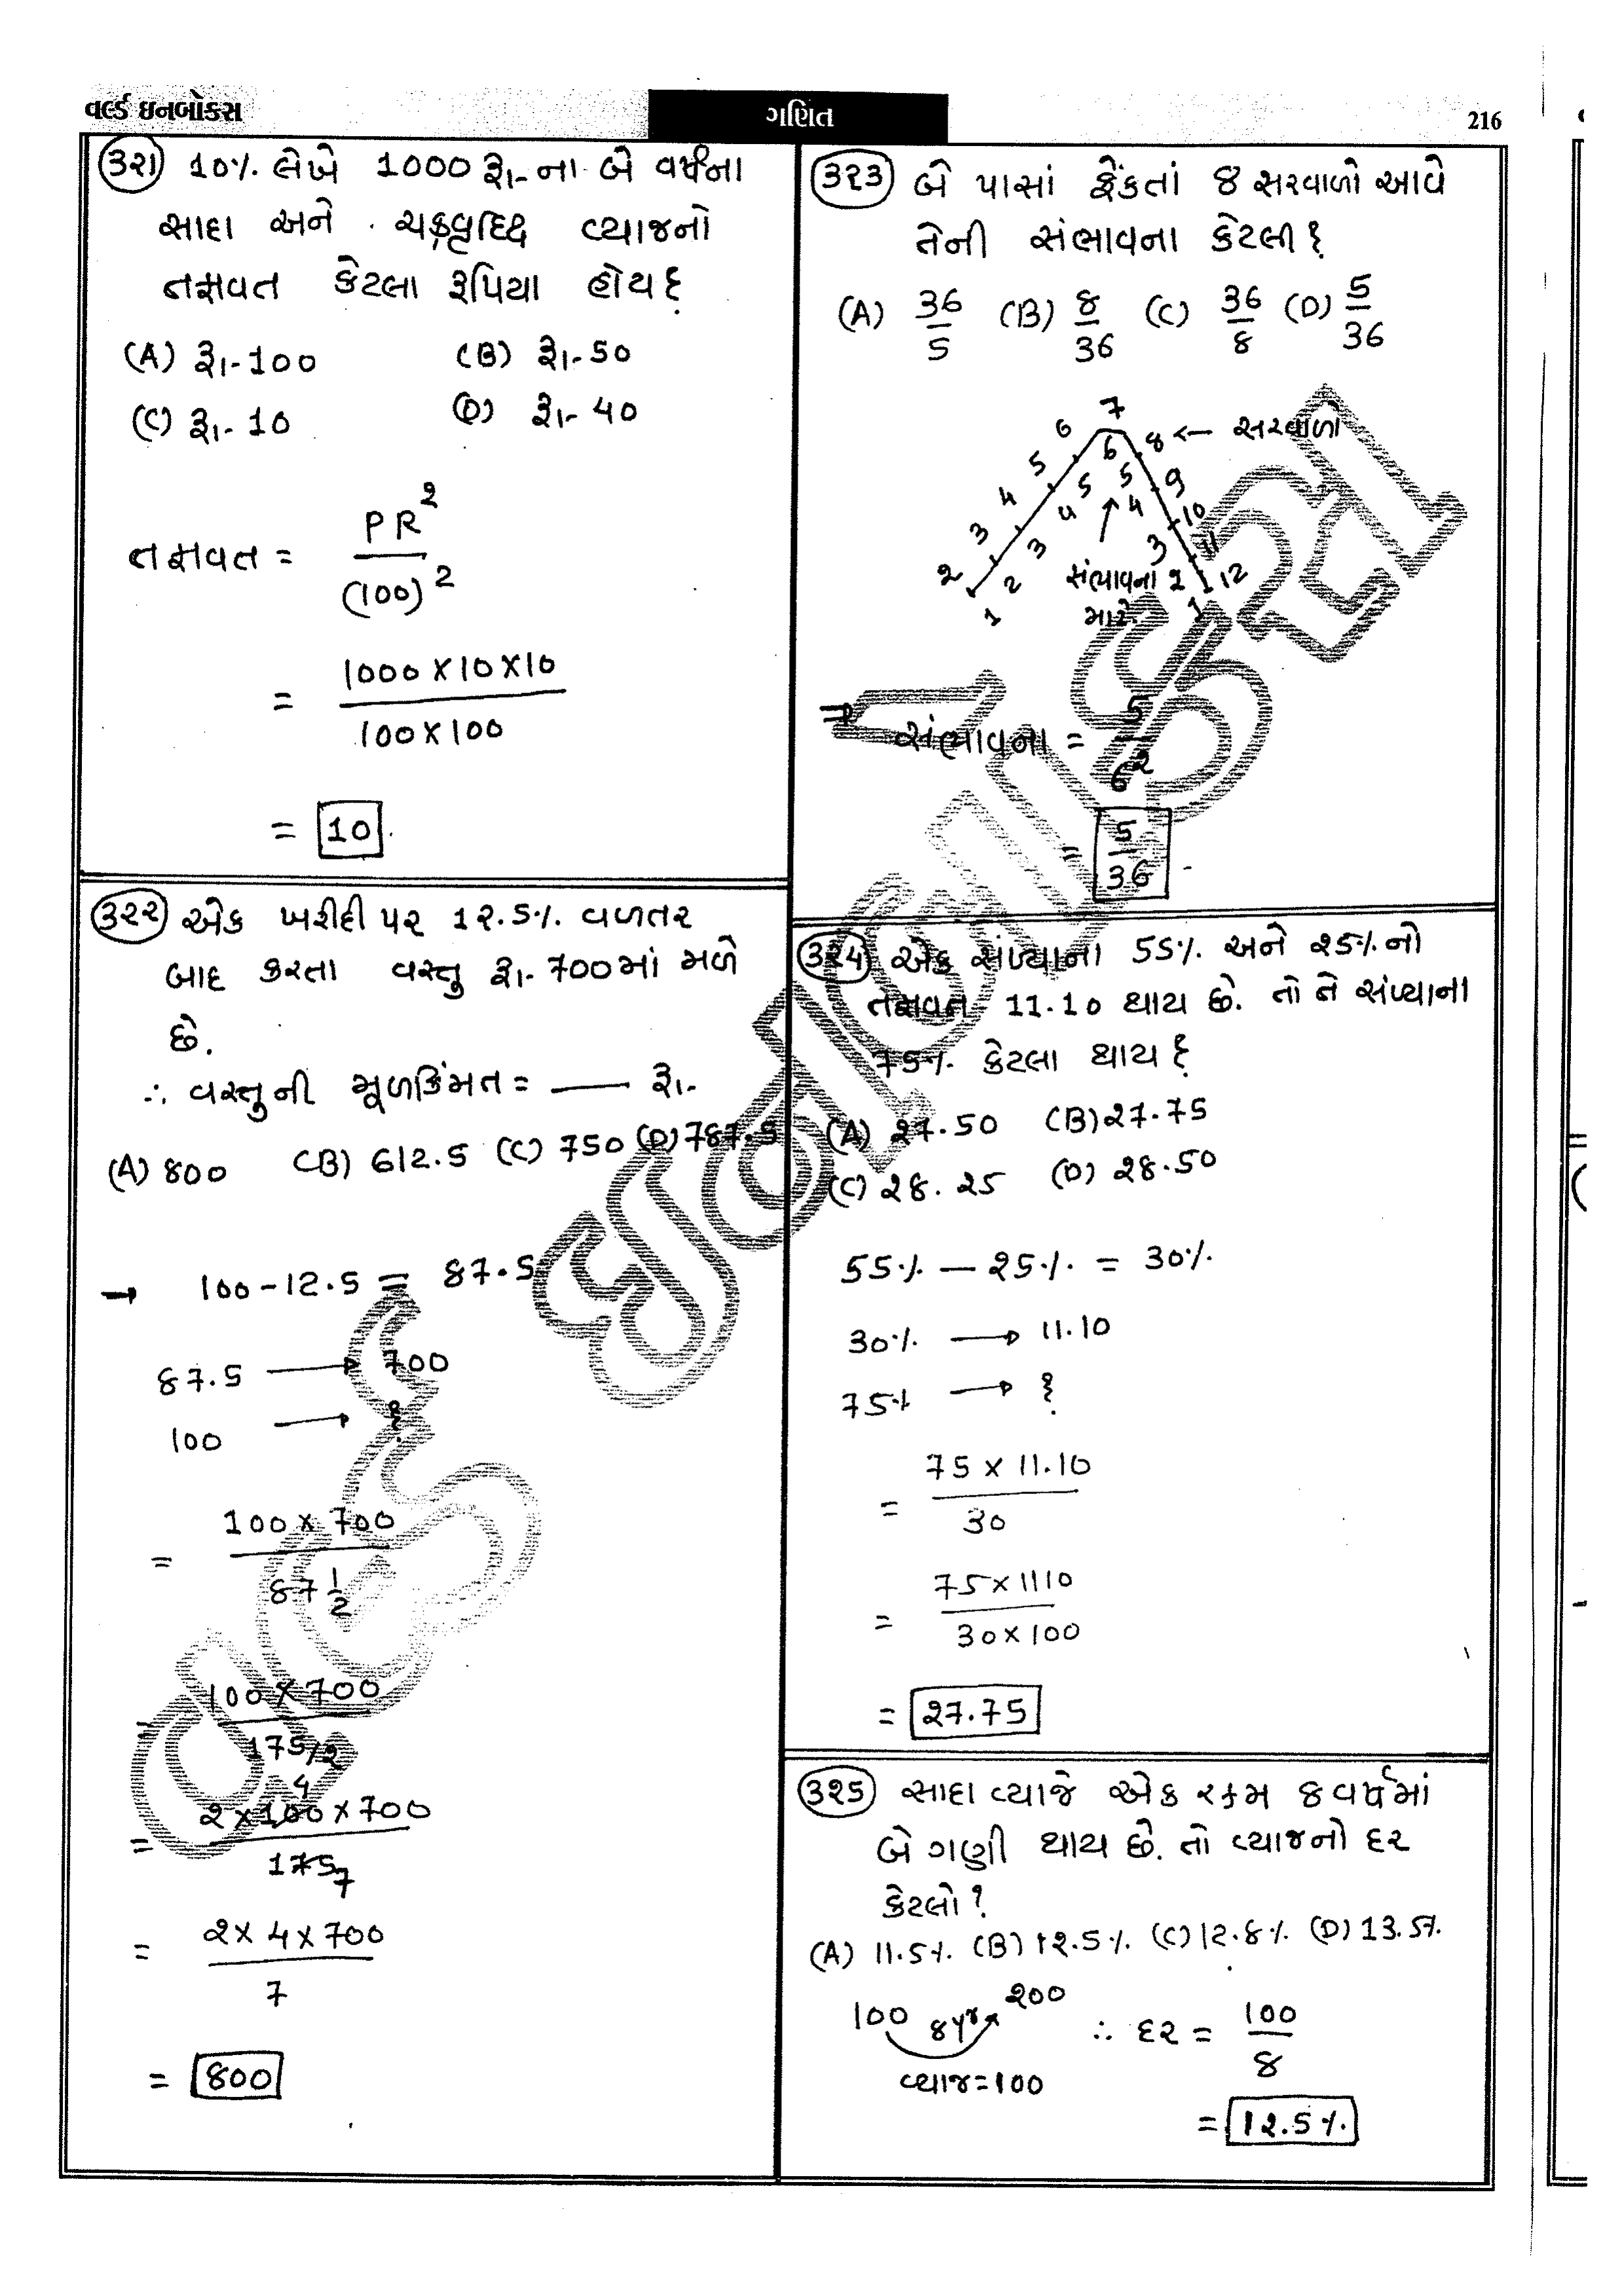 વર્લ્ડ ઇનબોક્સ
ગણિત
216
(૩૨૧) 10% લેખે 1000 રૂા.ના બે વર્ષના
સાદા અને ચક્રવૃધ્ધિ વ્યાજનો
તફાવત કેટલા રૂપિયા હોય?
(A) રૂા.100 (B) રૂા.50
(C) રૂા.10 (D) રૂા.40
તફાવત = PR²
(100)²
= 1000 X 10 X 10
100 X 100
= 10
(૩૨૨) એક ખરીદી પર 1૨.5% વળતર
બાદ કરતા વસ્તુ રૂા.700માં મળે
છે.
∴ વસ્તુની મૂળકિંમત = —— રૂા.
(A) 800 (B) 612.5 (C) 750 (D) 787.5
→ 100 - 12.5 = 87.5
87.5 → 700
100 → ?
= 100 x 700
87 1/2
= 100 x 700
175/2
4
= 2 x 100 x 700
175 7
= 2 x 4 x 700
7
= 800
(૩૨૩) બે પાસાં ફેંકતાં 8 સરવાળો આવે
તેની સંભાવના કેટલી?
(A) 36/5 (B) 8/36 (C) 36/8 (D) 5/36
7
6 8 ← સરવાળો
5 6 9
4 5 5 10
3 4 4 11
2 3 3 12
2 સંભાવના 2
1 માટે 1
⇒ સંભાવના = 5
6²
= 5
36
(૩૨૪) એક સંખ્યાના 55% અને ૨5%નો
તફાવત 11.10 થાય છે. તો તે સંખ્યાના
75% કેટલા થાય?
(A) ૨7.50 (B) ૨7.75
(C) ૨8.૨5 (D) ૨8.50
55% — ૨5% = 30%
30% → 11.10
75% → ?
= 75 x 11.10
30
= 75 x 1110
30 x 100
= ૨7.75
(૩૨5) સાદા વ્યાજે એક રકમ 8 વર્ષમાં
બે ગણી થાય છે. તો વ્યાજનો દર
કેટલો?
(A) 11.5% (B) 1૨.5% (C) 12.8% (D) 13.5%
100 8 yr ૨00 ∴ દર = 100
8
વ્યાજ = 100
= 1૨.5%